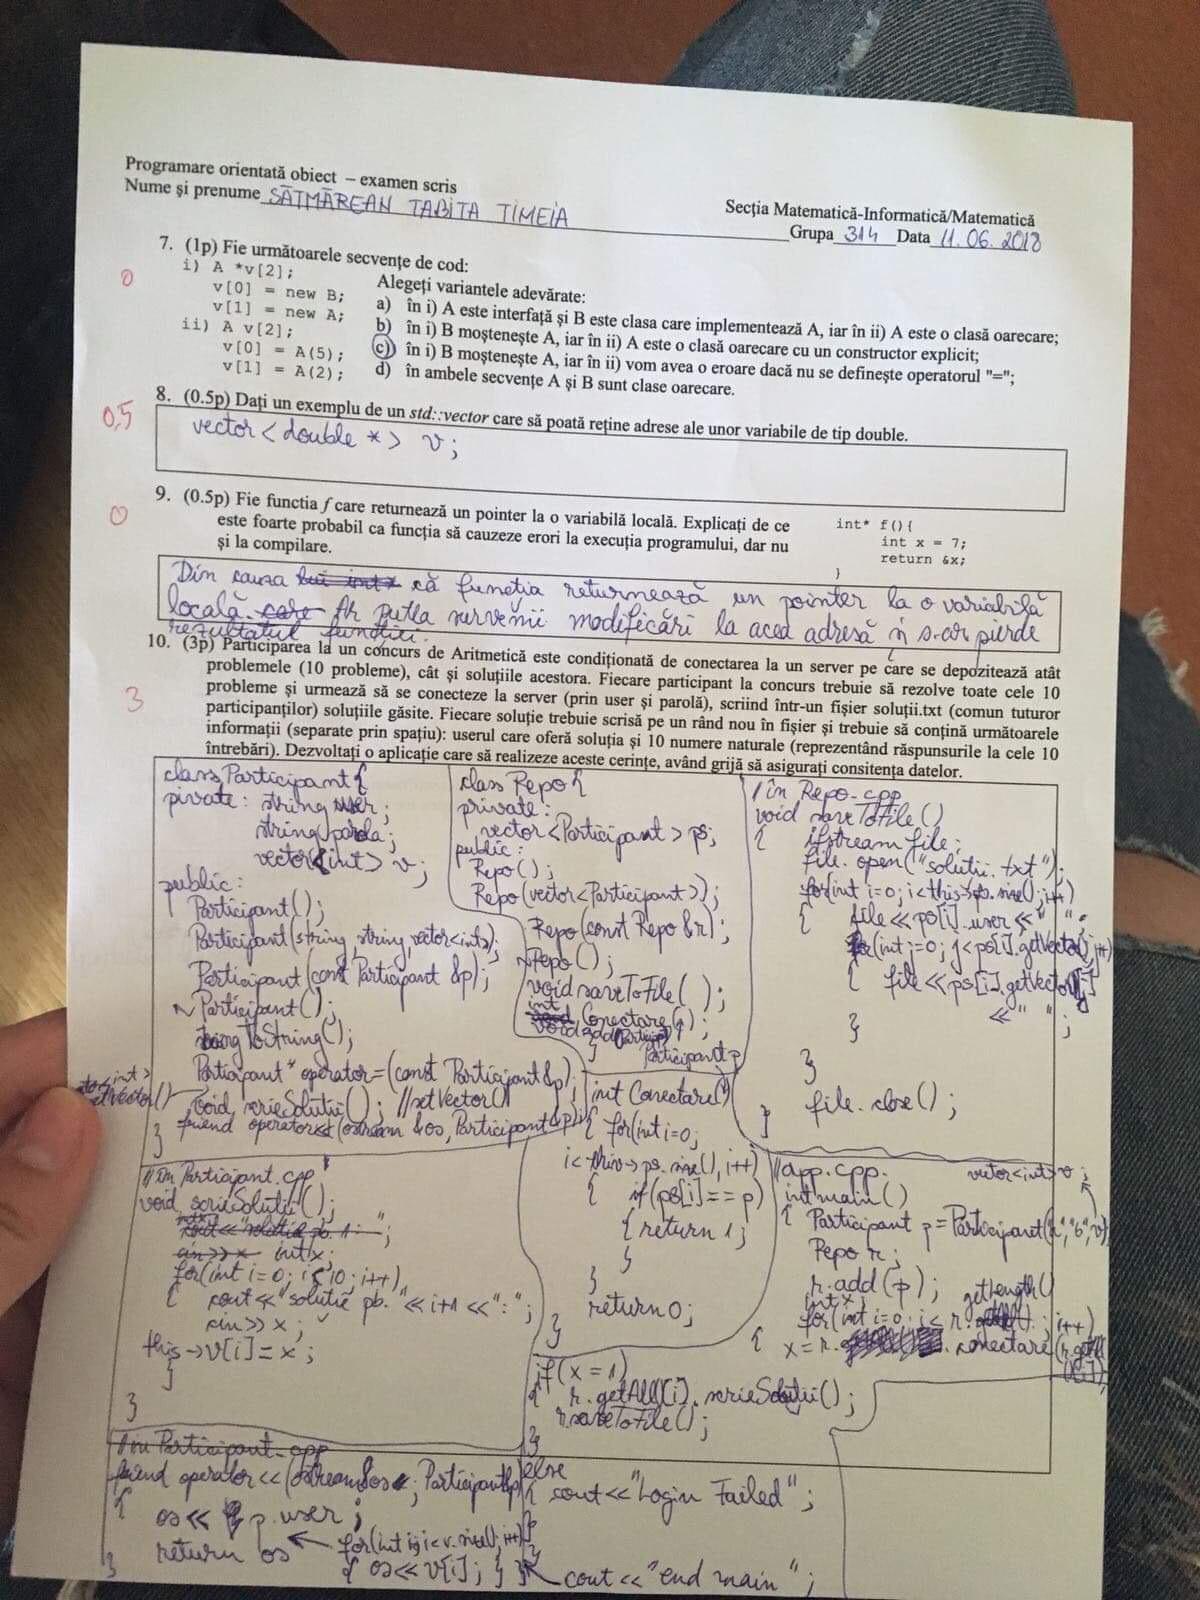 Programare orientată obiect – examen scris
Nume și prenume SĂTMĂREAN TABITA TIMEIA
Secția Matematică-Informatică/Matematică
Grupa 314 Data 11.06.2018
7. (1p) Fie următoarele secvențe de cod:
0
i) A *v[2];
v[0] = new B;
v[1] = new A;
ii) A v[2];
v[0] = A(5);
v[1] = A(2);
Alegeți variantele adevărate:
a) în i) A este interfață și B este clasa care implementează A, iar în ii) A este o clasă oarecare;
b) în i) B moștenește A, iar în ii) A este o clasă oarecare cu un constructor explicit;
c) în i) B moștenește A, iar în ii) vom avea o eroare dacă nu se definește operatorul "=";
d) în ambele secvențe A și B sunt clase oarecare.
8. (0.5p) Dați un exemplu de un std::vector care să poată reține adrese ale unor variabile de tip double.
0,5
vector<double *> v;
9. (0.5p) Fie functia f care returnează un pointer la o variabilă locală. Explicați de ce
este foarte probabil ca funcția să cauzeze erori la execuția programului, dar nu
și la compilare.
0
int* f(){
int x = 7;
return &x;
}
Din cauza că funcția returnează un pointer la o variabilă
locală. Ar putea surveni modificări la acea adresă și s-ar pierde
rezultatul funcției.
10. (3p) Participarea la un concurs de Aritmetică este condiționată de conectarea la un server pe care se depozitează atât
problemele (10 probleme), cât și soluțiile acestora. Fiecare participant la concurs trebuie să rezolve toate cele 10
probleme și urmează să se conecteze la server (prin user și parolă), scriind într-un fișier soluții.txt (comun tuturor
participanților) soluțiile găsite. Fiecare soluție trebuie scrisă pe un rând nou în fișier și trebuie să conțină următoarele
informații (separate prin spațiu): userul care oferă soluția și 10 numere naturale (reprezentând răspunsurile la cele 10
întrebări). Dezvoltați o aplicație care să realizeze aceste cerințe, având grijă să asigurați consitența datelor.
3
class Participant{
private: string user;
string parola;
vector<int> v;
public:
Participant();
Participant(string, string, vector<int>);
Participant(const Participant &p);
~Participant();
ToString();
Participant operator=(const Participant &p);
void scrieSolutii(); //setVector()
friend operator<<(ostream &os, Participant &p)
}
class Repo{
private:
vector<Participant> ps;
public:
Repo();
Repo(vector<Participant>);
Repo(const Repo &r);
~Repo();
void saveToFile( );
int Conectare( );
void add(Participant)
}
Participant p
int Conectare( )
{ for(int i=0;
i<this->ps.size(), i++)
{ if(ps[i]==p)
{ return 1;
}
}
return 0;
}
//în Repo.cpp
void saveToFile()
{ ifstream file;
file.open("solutii.txt");
for(int i=0; i<this->ps.size(); i++)
{ file<<ps[i].user<<" ";
for(int j=0; j<ps[i].getVector(); j++)
{ file<<ps[i].getVector[j]
<<" ";
}
}
file.close();
}
//în Participant.cpp
void scrieSolutii();
int x;
for(int i=0; i<10; i++)
{ cout<<"soluție pb. "<<i+1<<":";
cin>>x;
this->v[i]=x;
}
}
//app.cpp.
vector<int> v;
int main()
{ Participant p=Participant("a","b",v)
Repo r;
r.add(p);
int x
getLength()
for(int i=0; i<r. ; i++)
{ x=r. conectare(r.getAll
if(x=1)
{ r.getAll[i].scrieSoluții();
r.saveToFile();
}
else
{ cout<<"Login Failed";
}
cout<<"end main";
//în Participant.cpp
friend operator<<(ostream&os, Participant&p)
{
os<<p.user;
for(int i; i<v.size(); i++)
{ os<<v[i]; }
return os
}